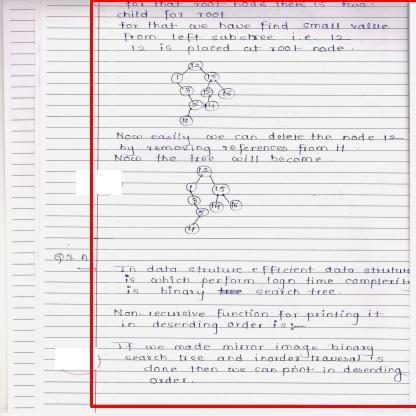 for that root node there is two
child for root
for that we have find small value
from left subtree i.e. 12
12 is placed at root node.
12
1 15
3 12 16
5 14
4
Now easily we can delete the node 12
by removing references from it
Now the tree will become
12
1 15
3 14 16
5
4
Q3. A
In data struture efficient data struture
is which perform logn time complexit
is binary tree search tree.
Non-recursive function for printing it
in desending order is:-
If we made mirror image binary
search tree and inorder travesal is
done then we can print in desending
order.